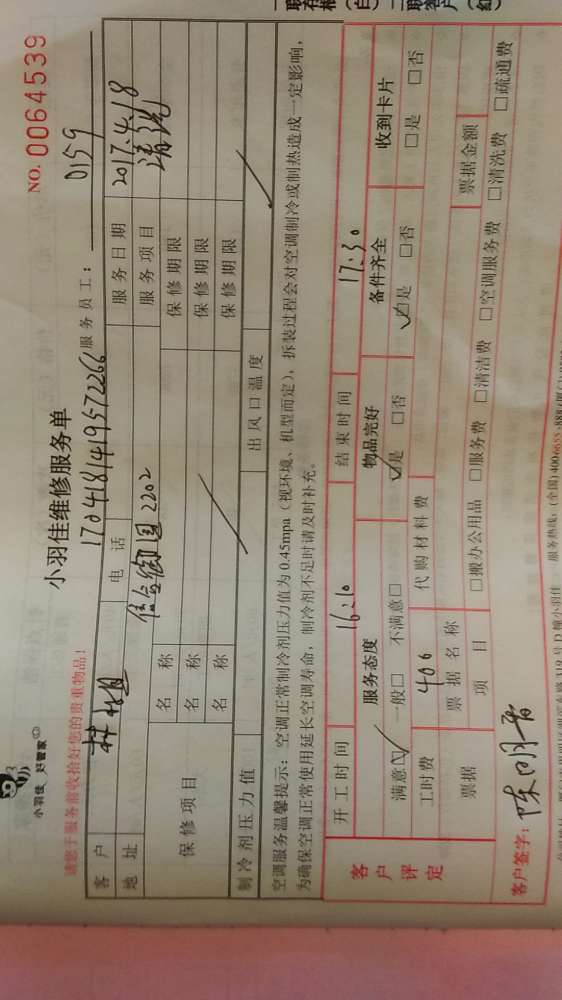 小羽佳 好管家
小羽佳维修服务单
NO. 0064539
请您于服务前收拾好您的贵重物品!
服务员工: 0159
客户 林 电话 17041814195 72266 服务日期 2017.4.18
地址 信台御园 2202 服务项目 清洗
保修项目 名称 保修期限
名称 保修期限
名称 保修期限
制冷剂压力值 出风口温度
空调服务温馨提示: 空调正常制冷剂压力值为0.45mpa(视环境、机型而定), 拆装过程会对空调制冷或制热造成一定影响,
为确保空调正常使用延长空调寿命, 制冷剂不足时请及时补充。
客户评定 开工时间 16:10 结束时间 17:30
服务态度 物品完好 备件齐全 收到卡片
满意☑ 一般□ 不满意□ ☑是 □否 ☑是 □否 □是 □否
工时费 400 代购材料费
票据 票据名称 票据金额
项目 □搬办公用品 □服务费 □清洁费 □空调服务费 □清洗费 □疏通费
客户签字: 陈明
服务热线: (全国)400